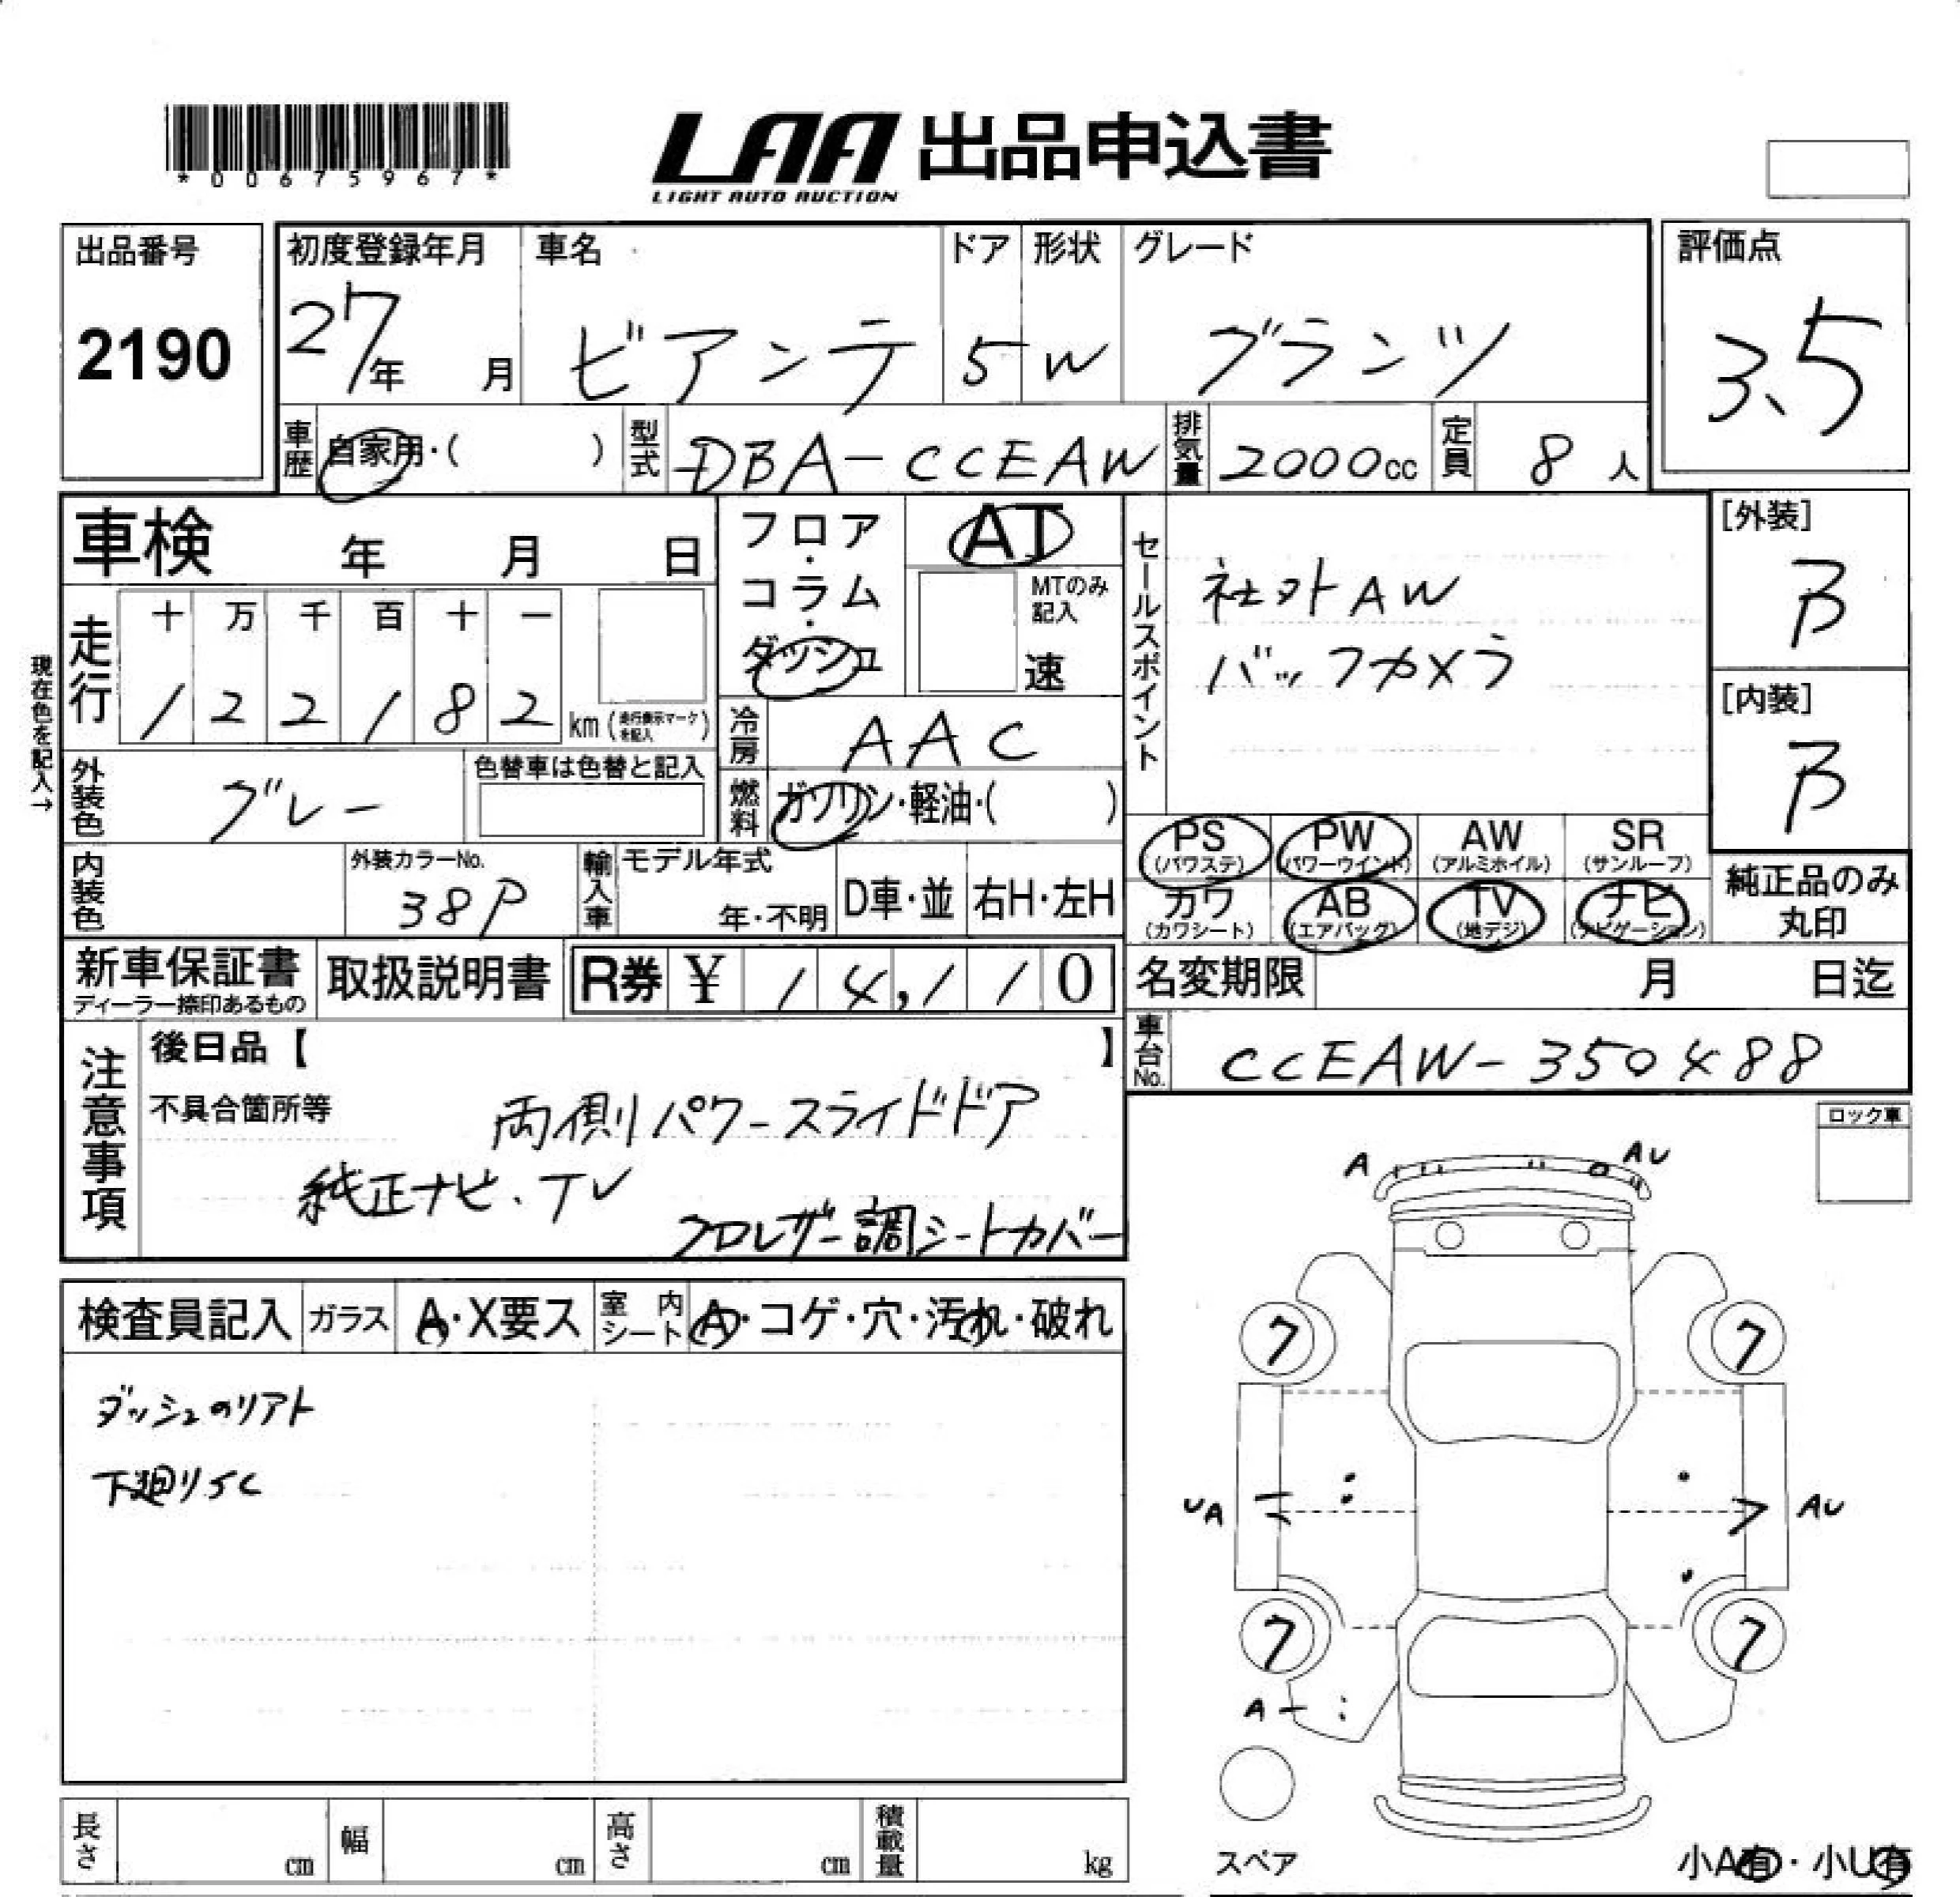 *00675967*
LAA 出品申込書
LIGHT AUTO AUCTION
出品番号
2190
初度登録年月
27年 月
車名
ビアンテ
ドア
5
形状
W
グレード
グランツ
評価点
3.5
車歴
自家用・( )
型式
DBA-CCEAW
排気量
2000cc
定員
8人
車検 年 月 日
フロア・コラム・ダッシュ
AT
MTのみ記入
速
セールスポイント
社外AW
バックカメラ
[外装]
B
[内装]
B
現在色を記入→
走行
十 万 千 百 十 一
1 2 2 1 8 2 km (走行表示マークを記入)
冷房
AAC
外装色
グレー
色替車は色替と記入
燃料
ガソリン・軽油・( )
PS
(パワステ)
PW
(パワーウインド)
AW
(アルミホイル)
SR
(サンルーフ)
カワ
(カワシート)
AB
(エアバッグ)
TV
(地デジ)
ナビ
(ナビゲーション)
純正品のみ
丸印
内装色
外装カラーNo.
38P
輸入車
モデル年式
年・不明
D車・並
右H・左H
新車保証書
ディーラー捺印あるもの
取扱説明書
R券 ¥ 14,110
名変期限 月 日迄
車台No.
CCEAW-350488
注意事項
後日品【 】
不具合箇所等
両側パワースライドドア
純正ナビ.TV
フロレザー調シートカバー
ロック車
検査員記入
ガラス
A・X要ス
室内シート
A・コゲ・穴・汚れ・破れ
ダッシュのリアト
下廻りSC
A
AU
7
7
UA
AU
7
7
A
スペア
小A有・小U有
長さ cm
幅 cm
高さ cm
積載量 kg